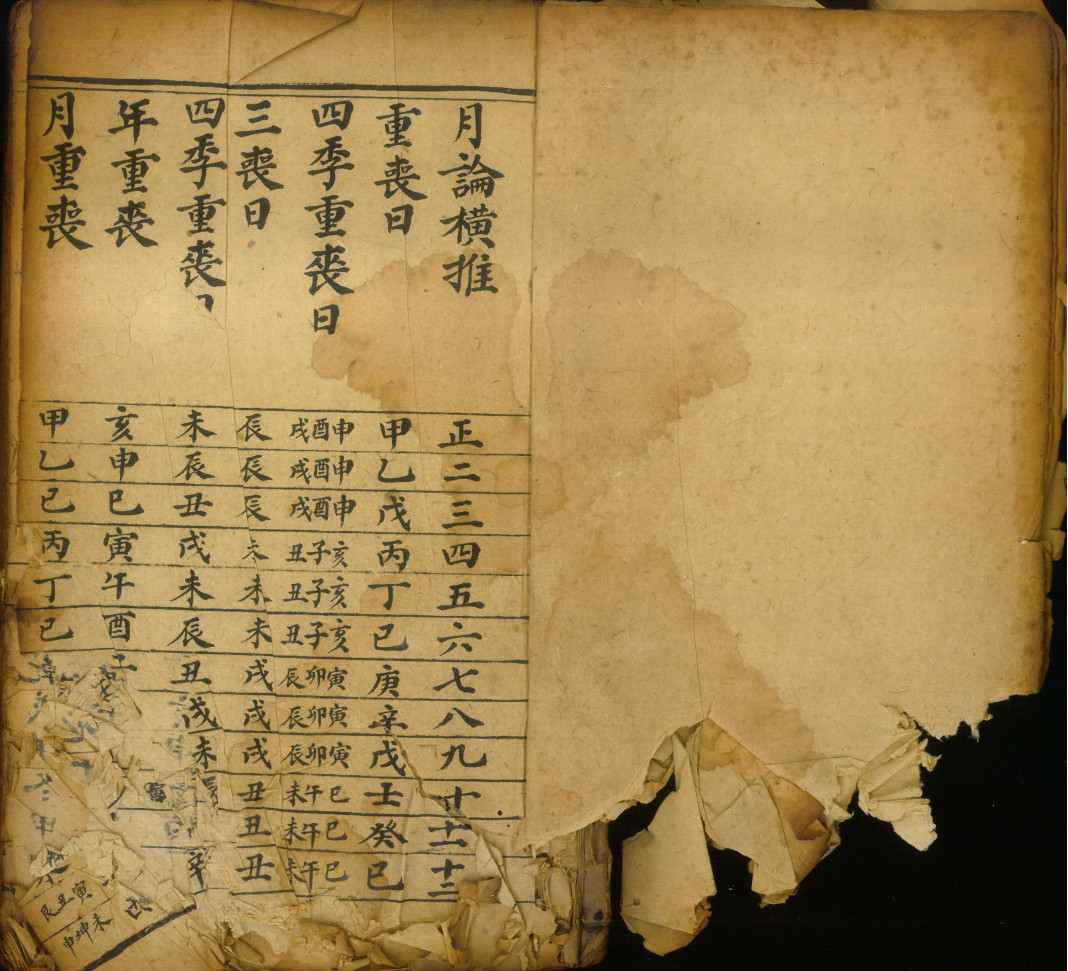 月論橫推 正 二 三 四 五 六 七 八 九 十 十一 十二
重喪日 甲 乙 戊 丙 丁 己 庚 辛 戊 壬 癸 己
四季重喪日 申酉戌 申酉戌 申酉戌 亥子丑 亥子丑 亥子丑 寅卯辰 寅卯辰 寅卯辰 巳午未 巳午未 巳午未
三喪日 辰 辰 辰 未 未 未 戌 戌 戌 丑 丑 丑
四季重喪日 未 辰 丑 戌 未 辰 丑 戌 未 辰
年重喪 亥 申 巳 寅 午 酉 子
月重喪 甲 乙 己 丙 丁 己
寅丑艮
未坤申